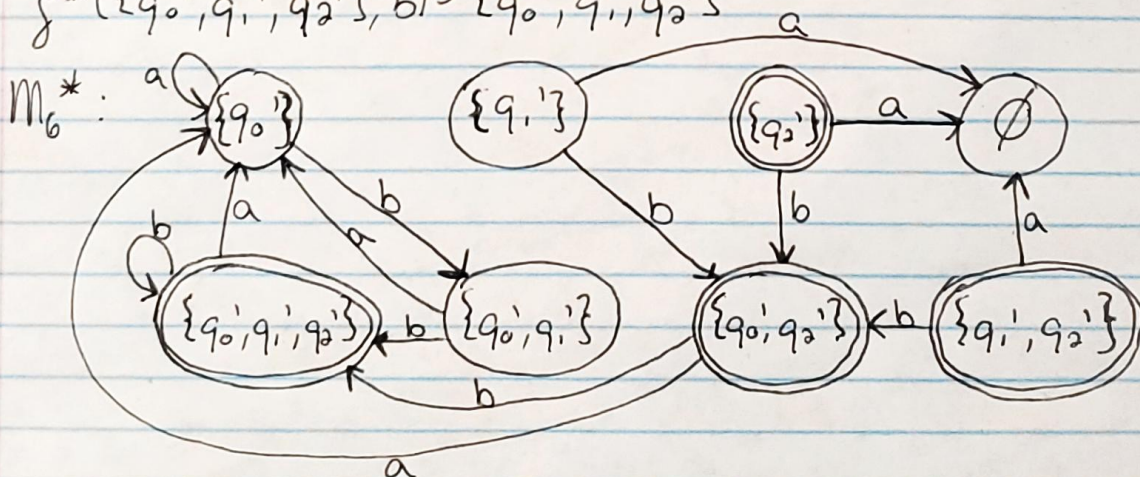 ({q₀', q₁', q₂'}, b) = {q₀', q₁', q₂'}
a
M₆*:
a
{q₀'}
{q₁'}
{q₂'}
a
∅
b
a
a
b
b
a
b
{q₀', q₁', q₂'}
b
{q₀', q₁'}
{q₀', q₂'}
b
{q₁', q₂'}
b
a